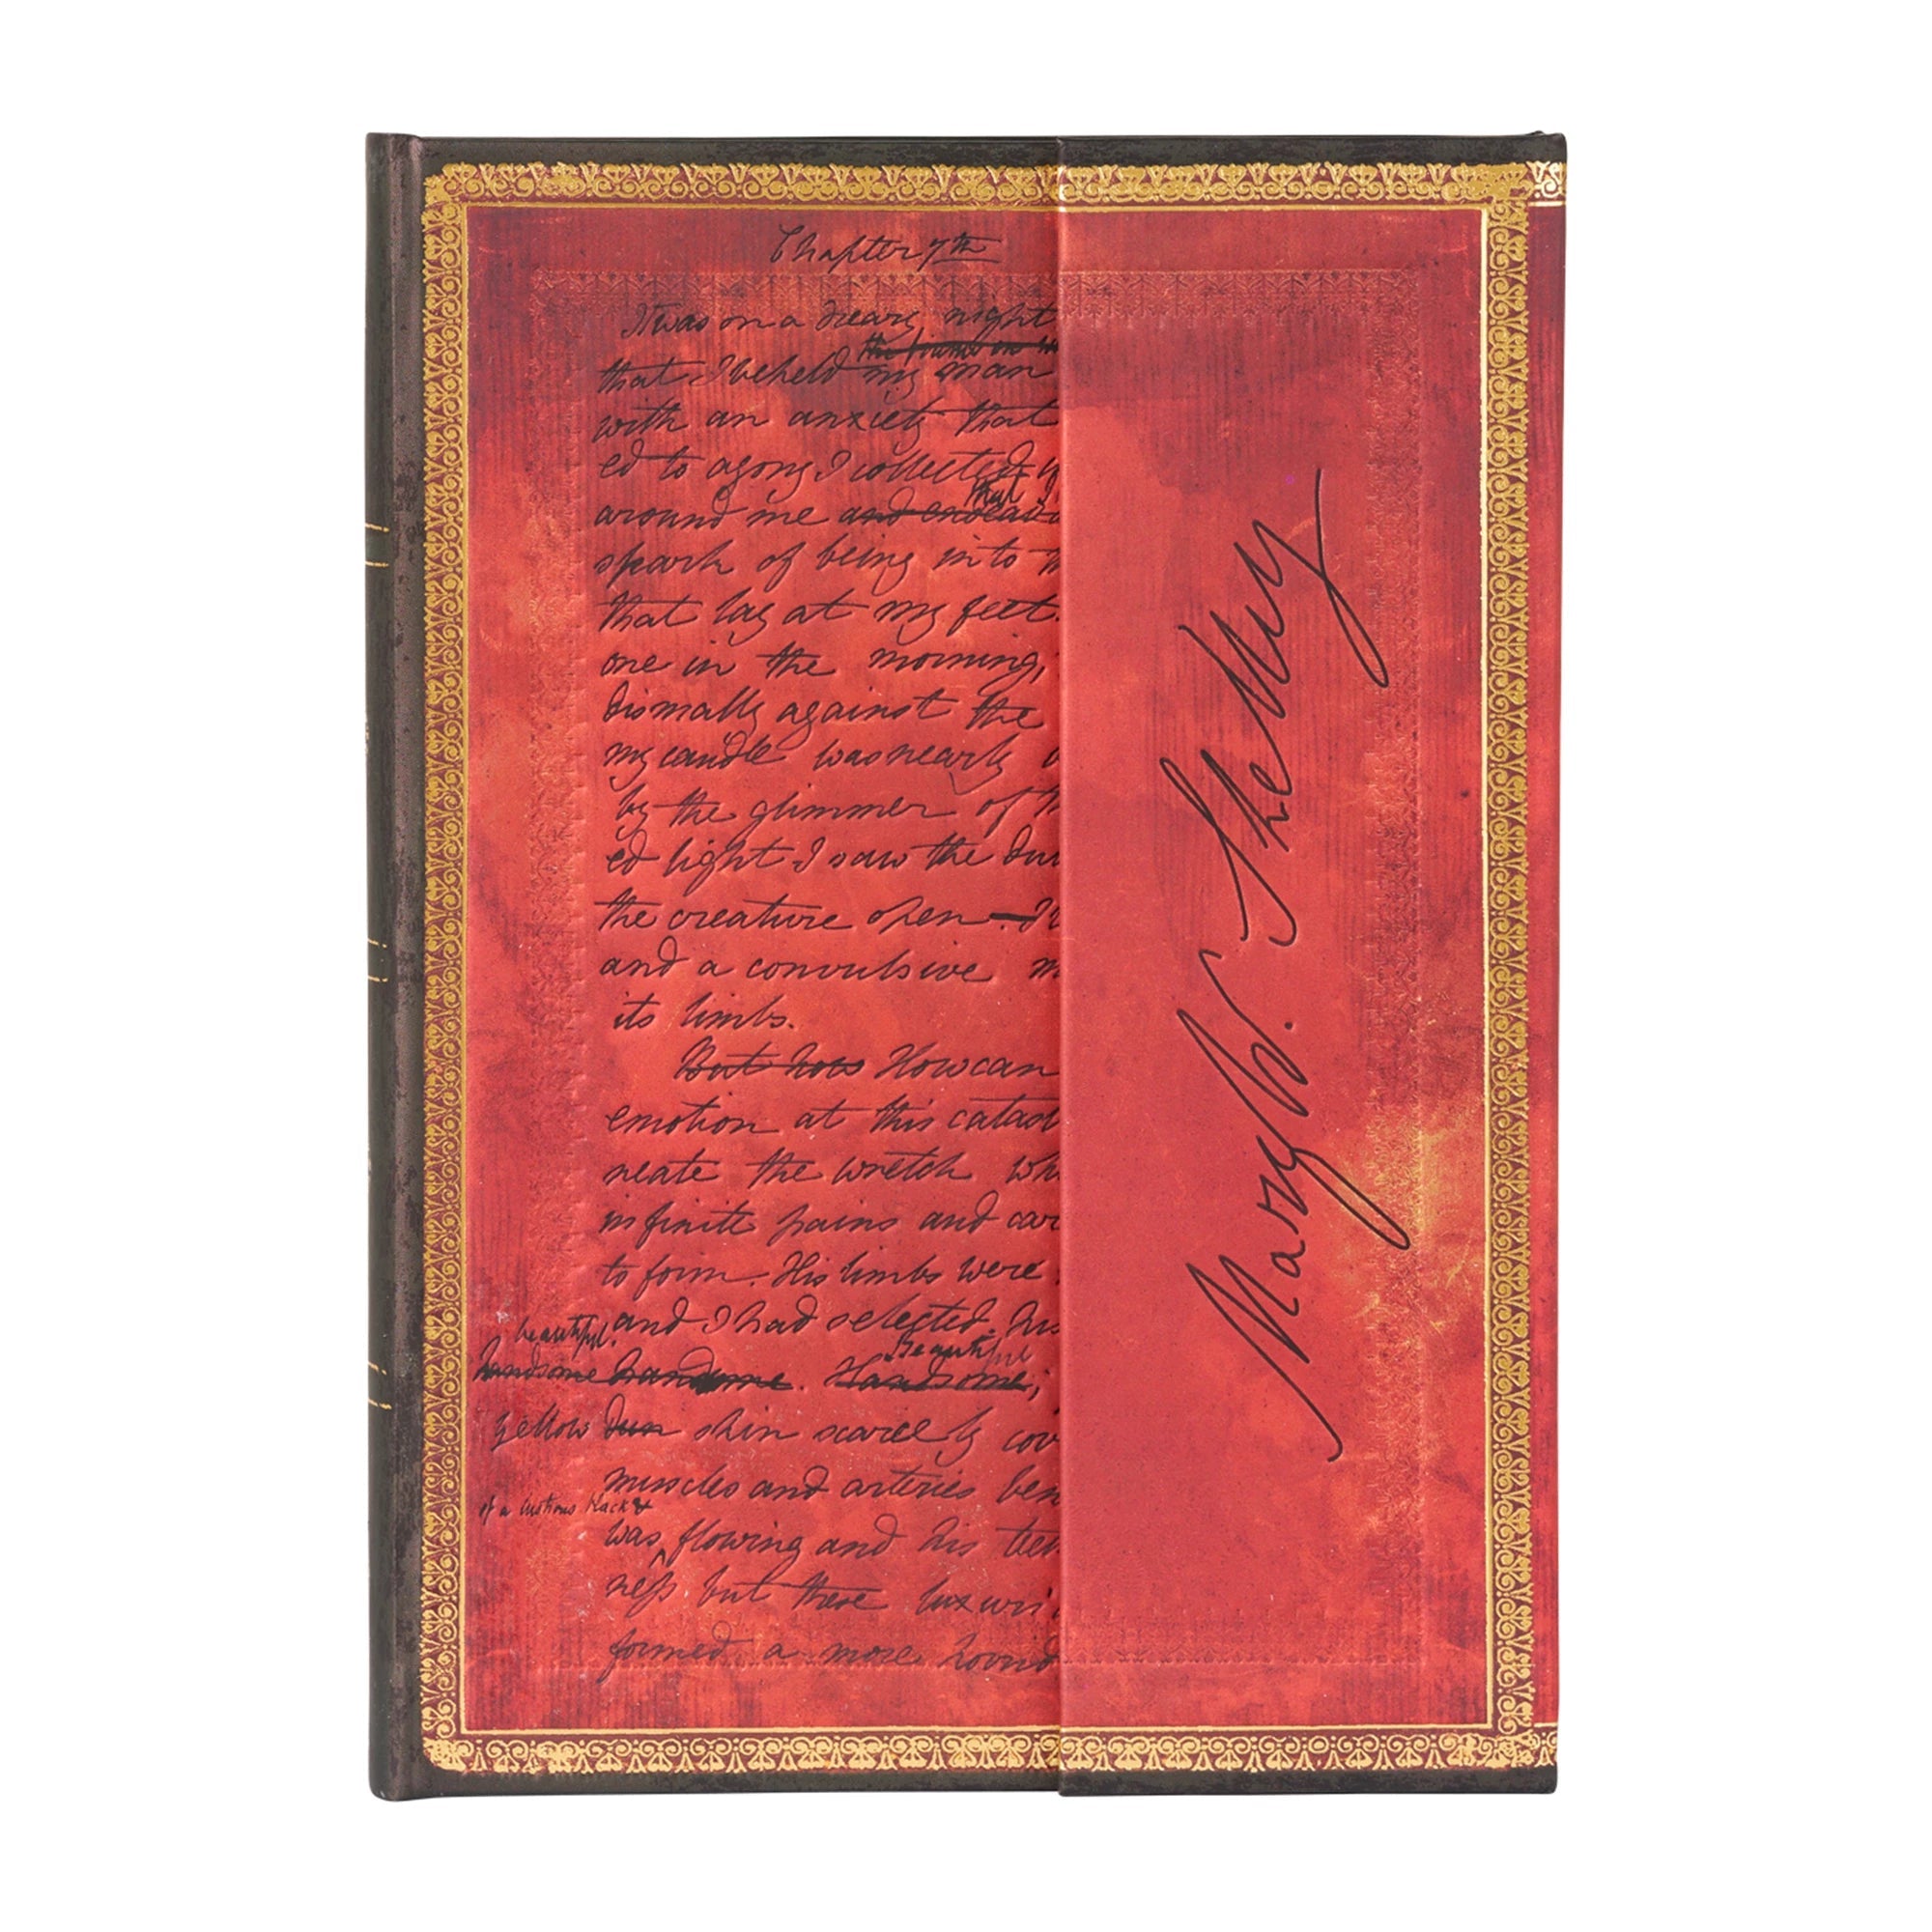 Chapter 7th
It was on a dreary night
that I beheld my man
with an anxiety that
ed to agony I collected
that
around me and endeavo
spark of being into
that lay at my feet.
one in the morning,
dismally against the
my candle was nearly
by the glimmer of
ed light I saw the
the creature open
and a convulsive
its limbs.
But how How can
emotion at this catast
neate the wretch wh
infinite pains and car
to form. His limbs were
and I had selected his
beautiful.
Beautiful
handsome handsome. Handsome;
yellow dun skin scarcely cov
muscles and arteries ben
of a lustrous black &
was flowing and his tee
ness but these luxuri
formed a more horrid
Mary W. Shelley